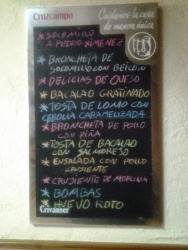 Cruzcampo
Cuidamos la caña
de manera única
SOLOMILLO
A PEDRO XIMENEZ
BROCHETA DE
SOLOMILLO CON BEICON
DELICIAS DE QUESO
BACALAO GRATINADO
TOSTA DE LOMO CON
CEBOLLA CARAMELIZADA
BROCHETA DE POLLO
CON PIÑA
TOSTA DE BACALAO
CON SALMOREJO
ENSALADA CON POLLO
CRUJIENTE
CRUJIENTE DE MORCILLA
BOMBAS
HUEVO ROTO